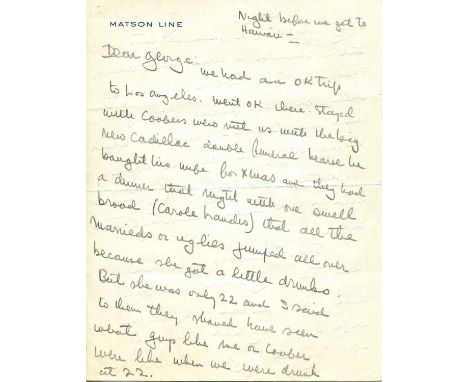 MATSON LINE
Night before we get to
Hawaii —
Dear George:
we had an OK trip
to Los angeles. Went OK there. Stayed
with Coopers who met us with the big
new Cadillac double funeral hearse he
bought his wife for Xmas and they had
a dinner that night with one swell
broad (Carole Landis) that all the
marrieds or uglies jumped all over
because she got a little drunko.
But she was only 22 and I said
to them they should have seen
what guys like me or Cooper
were like when we were drunk
at 22.